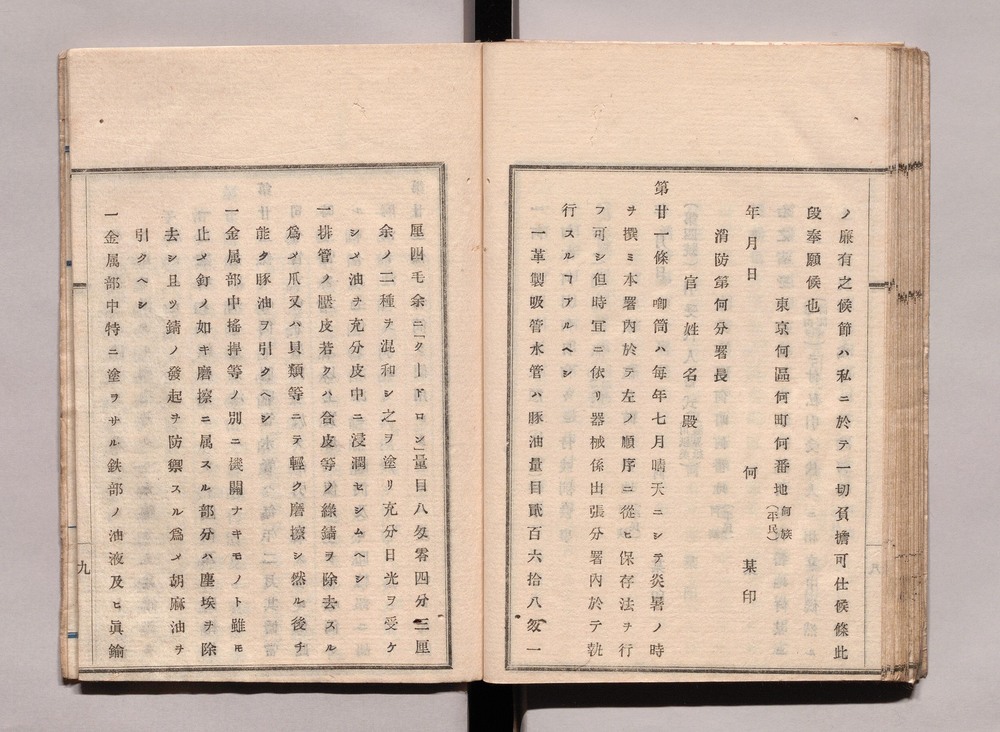 ノ廉有之候節ハ私ニ於テ一切負擔可仕候條此
段奉願候也
東京何區何町何番地 何族（平民）
年月日 何 某印
消防第何分署長
官姓名殿
第廿一條 喞筒ハ毎年七月晴天ニシテ炎暑ノ時
ヲ撰ミ本署內於テ左ノ順序ニ從ヒ保存法ヲ行
フ可シ但時宜ニ依リ器械係出張分署內於テ執
行スルヿアルヘシ
一革製吸管水管ハ豚油量目貳百六拾八匁一
厘四毛余ニ「クードロン」量目八匁零四分三厘
余ノ二種ヲ混和シ之ヲ塗リ充分日光ヲ受ケ
シメ油ヲ充分皮中ニ浸潤セシムヘシ
一排管ノ壓皮若クハ合皮等ノ綠錆ヲ除去スル
爲メ爪又ハ貝類等ニテ輕ク磨擦シ然ル後チ
能ク豚油ヲ引クヘシ
一金属部中搖捍等ノ別ニ機關ナキモノト雖モ
止メ釘ノ如キ磨擦ニ属スル部分ハ塵埃ヲ除
去シ且ツ錆ノ發起ヲ防禦スル爲メ胡麻油ヲ
引クヘシ
一金属部中特ニ塗ヲサル鉄部ノ油液及ヒ眞鍮
九